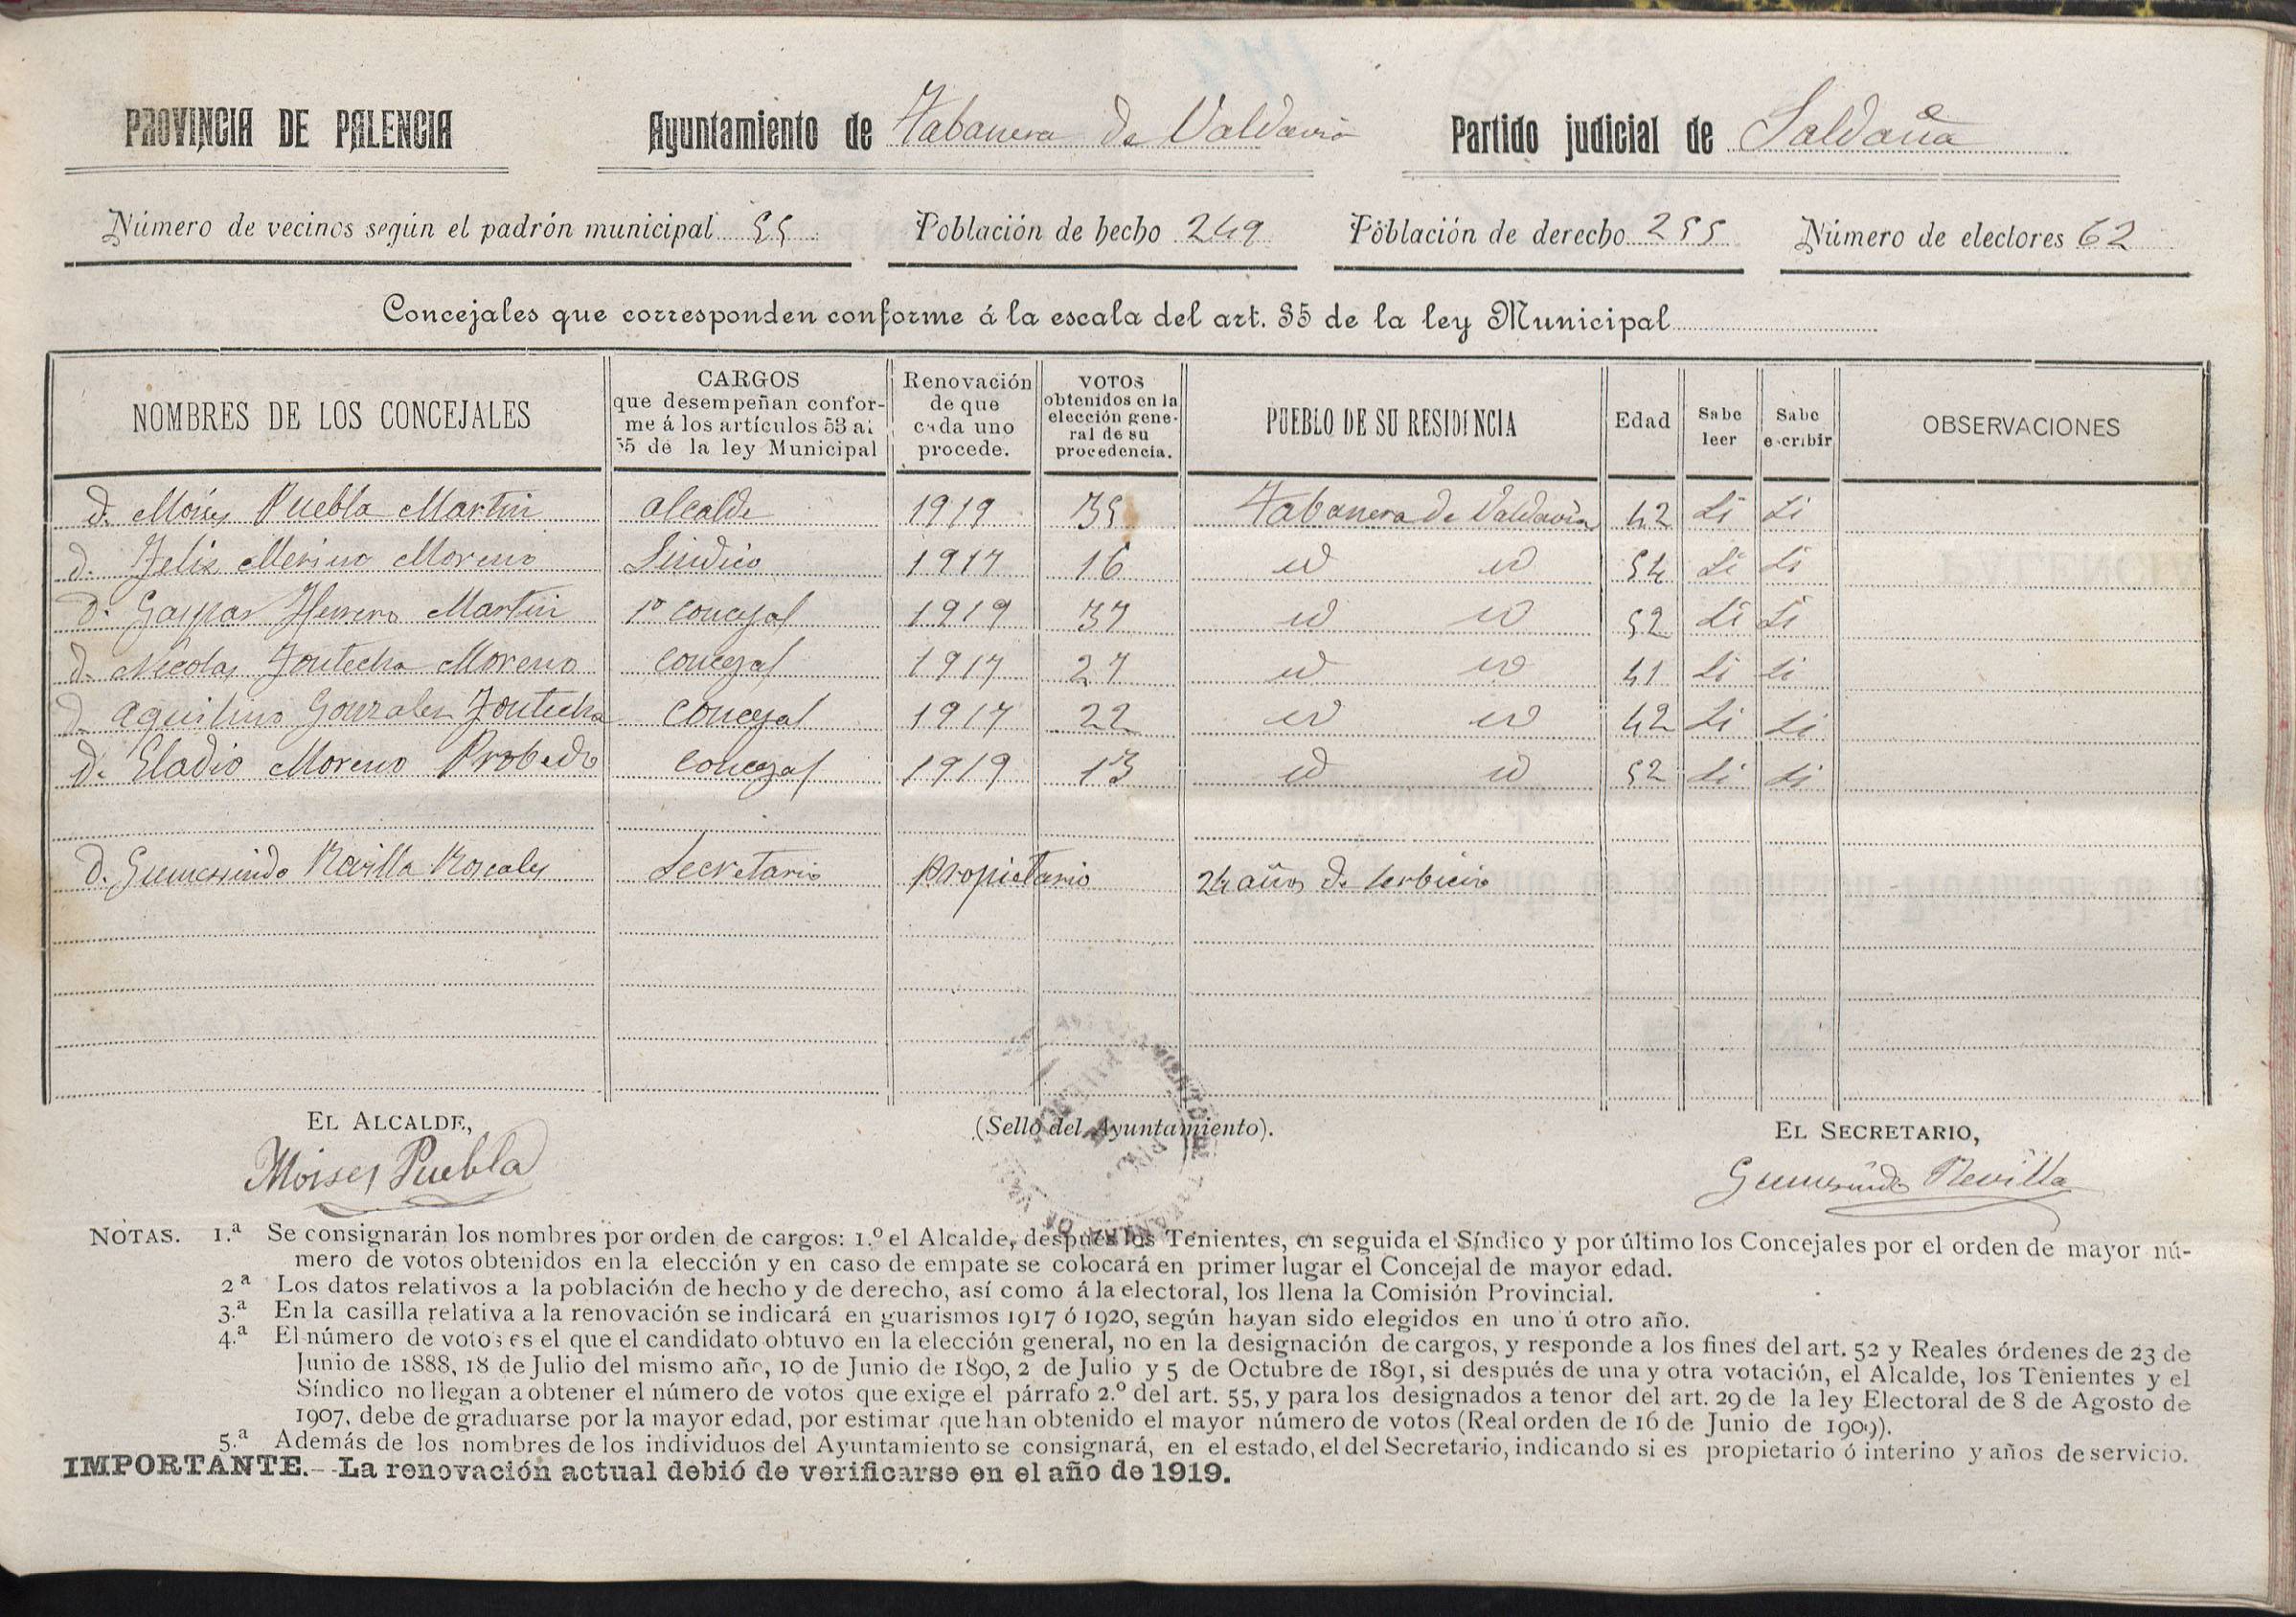 PROVINCIA DE PALENCIA Ayuntamiento de Tabanera de Valdavia Partido judicial de Saldaña
Número de vecinos según el padrón municipal 55 Población de hecho 249 Población de derecho 255 Número de electores 62
Concejales que corresponden conforme á la escala del art. 35 de la ley Municipal
NOMBRES DE LOS CONCEJALES
CARGOS
que desempeñan confor-
me á los artículos 53 al
55 de la ley Municipal
Renovación
de que
cada uno
procede.
VOTOS
obtenidos en la
elección gene-
ral de su
procedencia.
PUEBLO DE SU RESIDENCIA
Edad
Sabe
leer
Sabe
escribir
OBSERVACIONES
D. Moises Puebla Martin alcalde 1919 35 Tabanera de Valdavia 42 Si Si
D. Felix Merino Moreno Sindico 1917 16 id id 54 Si Si
D. Gaspar Herrero Martin 1º concejal 1919 37 id id 52 Si Si
D. Nicolas Fontecha Moreno concejal 1917 27 id id 41 Si Si
D. Aquilino Gonzalez Fontecha concejal 1917 22 id id 42 Si Si
D. Eladio Moreno Probedo concejal 1919 13 id id 52 Si Si
D. Gumersindo Revilla Roscales Secretario propietario 24 años de serbicio
EL ALCALDE, (Sello del Ayuntamiento). EL SECRETARIO,
Moises Puebla Gumersindo Revilla
NOTAS. 1.ª Se consignarán los nombres por orden de cargos: 1.º el Alcalde, después los Tenientes, en seguida el Síndico y por último los Concejales por el orden de mayor nú-
mero de votos obtenidos en la elección y en caso de empate se colocará en primer lugar el Concejal de mayor edad.
2ª Los datos relativos a la población de hecho y de derecho, así como á la electoral, los llena la Comisión Provincial.
3.ª En la casilla relativa a la renovación se indicará en guarismos 1917 ó 1920, según hayan sido elegidos en uno ú otro año.
4.ª El número de votos es el que el candidato obtuvo en la elección general, no en la designación de cargos, y responde a los fines del art. 52 y Reales órdenes de 23 de
Junio de 1888, 18 de Julio del mismo año, 10 de Junio de 1890, 2 de Julio y 5 de Octubre de 1891, si después de una y otra votación, el Alcalde, los Tenientes y el
Síndico no llegan a obtener el número de votos que exige el párrafo 2.º del art. 55, y para los designados a tenor del art. 29 de la ley Electoral de 8 de Agosto de
1907, debe de graduarse por la mayor edad, por estimar que han obtenido el mayor número de votos (Real orden de 16 de Junio de 1909).
5.ª Además de los nombres de los individuos del Ayuntamiento se consignará, en el estado, el del Secretario, indicando si es propietario ó interino y años de servicio.
IMPORTANTE.--La renovación actual debió de verificarse en el año de 1919.